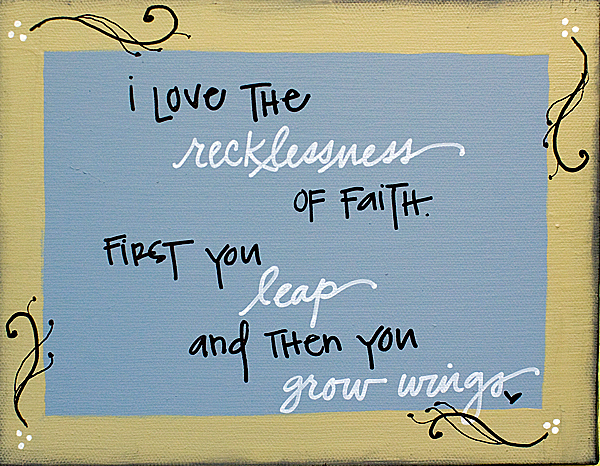 i Love THe
recklessness
OF FaiTH.
FirST you
leap
and THen you
grow wings